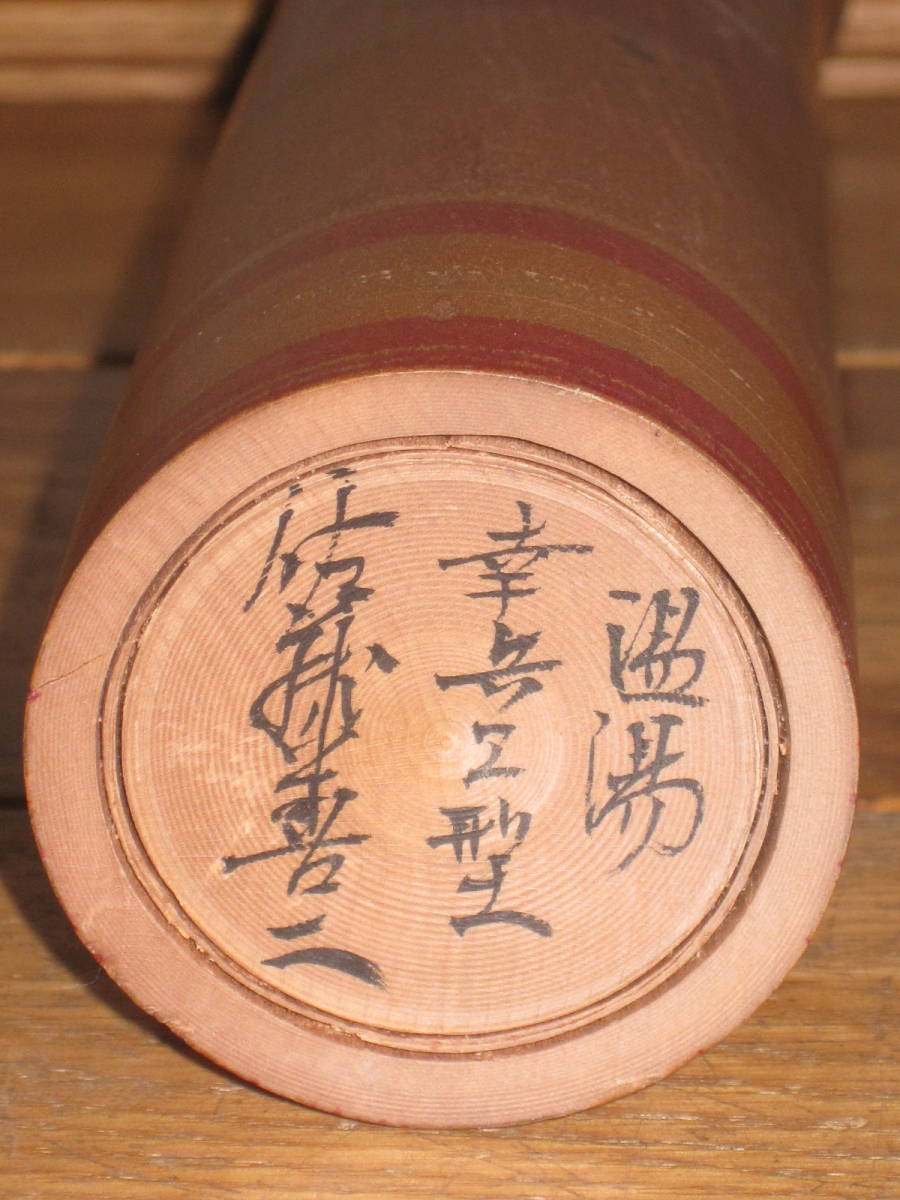 温湯
幸兵エ型
佐藤善二